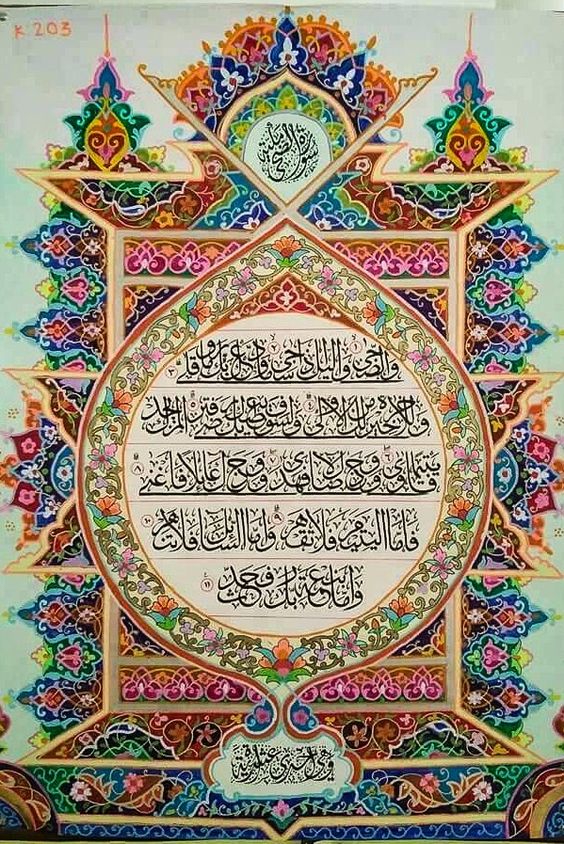 K 203
سورة الضحى مكية
والضحى ١ والليل اذا سجى ٢ ما ودعك ربك وما قلى ٣
وللاخرة خير لك من الاولى ٤ ولسوف يعطيك ربك فترضى ٥ الم يجدك
يتيما فاوى ٦ ووجدك ضالا فهدى ٧ ووجدك عائلا فاغنى ٨
فاما اليتيم فلا تقهر ٩ واما السائل فلا تنهر ١٠
واما بنعمة ربك فحدث ١١